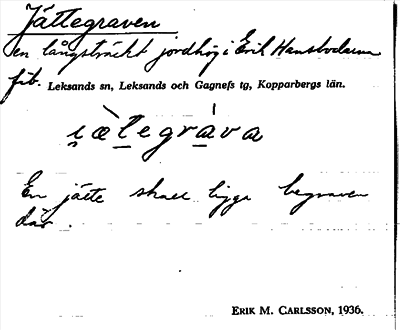 Jättegraven
en långsträckt jordhög i Erik Hansbodarna
fäb. Leksands sn, Leksands och Gagnefs tg, Kopparbergs län.
i̯æ̀tegráva
En jätte skall ligga begraven
där.
ERIK M. CARLSSON, 1936.